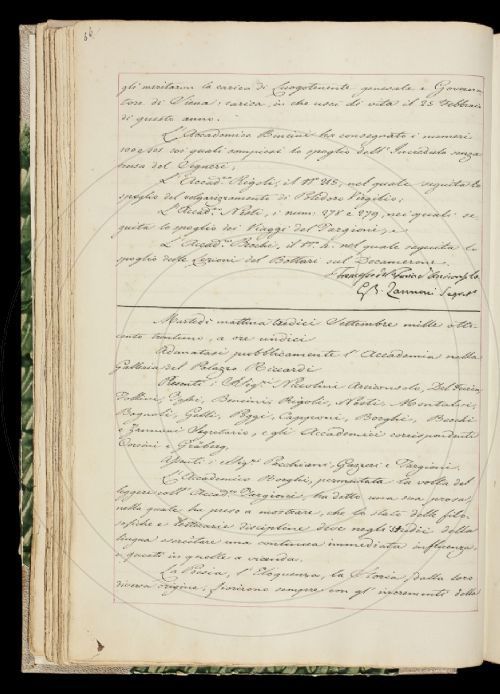 86
gli meritaron la carica di Luogotenente generale e Governa-
tore di Siena: carica, in che uscì di vita il 25 Febbraio
di questo anno.
L'Accademico Bencini ha consegnato i numeri
100 e 101 coi quali compiesi lo spoglio dell'Incredulo senza
scusa del Segneri;
L'Accad.co Rigoli, il N.o 215, nel quale seguita lo
spoglio del volgarizzamento di Polidoro Virgilio;
L'Accad.co Nesti, i num: 278 e 279, nei quali se-
guita lo spoglio dei Viaggi del Targioni; e
L'Accad.co Becchi, il N.o 4. nel quale seguita lo
spoglio delle Lezioni del Bottari sul Decamerone.
G.B. Zannoni Segret.o
Martedì mattina tredici Settembre mille otto-
cento trentuno, a ore undici
Adunatasi pubblicamente l'Accademia nella
Galleria del Palazzo Riccardi
Presenti: i Sig.ri Niccolini Arciconsolo, Del Furia,
Follini, Bencini, Rigoli, Nesti, Montalvi,
Bagnoli, Gatti, Poggi, Capponi, Borghi, Becchi
e Zannoni Segretario, e gli Accademici corrispondenti
Corsini e Gräberg,
Assenti: i Sig.ri Pacchiani, Gazzeri e Targioni.
L'Accademico Borghi, permutata la volta del
leggere coll'Accad.co Targioni, ha detto una sua prosa,
nella quale ha preso a mostrare, che lo stato delle filo-
sofiche e letterarie discipline deve negli studi della
lingua esercitare una continua immediata influenza,
e questi in quelle a vicenda.
La Poesia, l'Eloquenza, la Storia, dalla loro
diversa origine, fiorirono sempre con gl'incrementi della